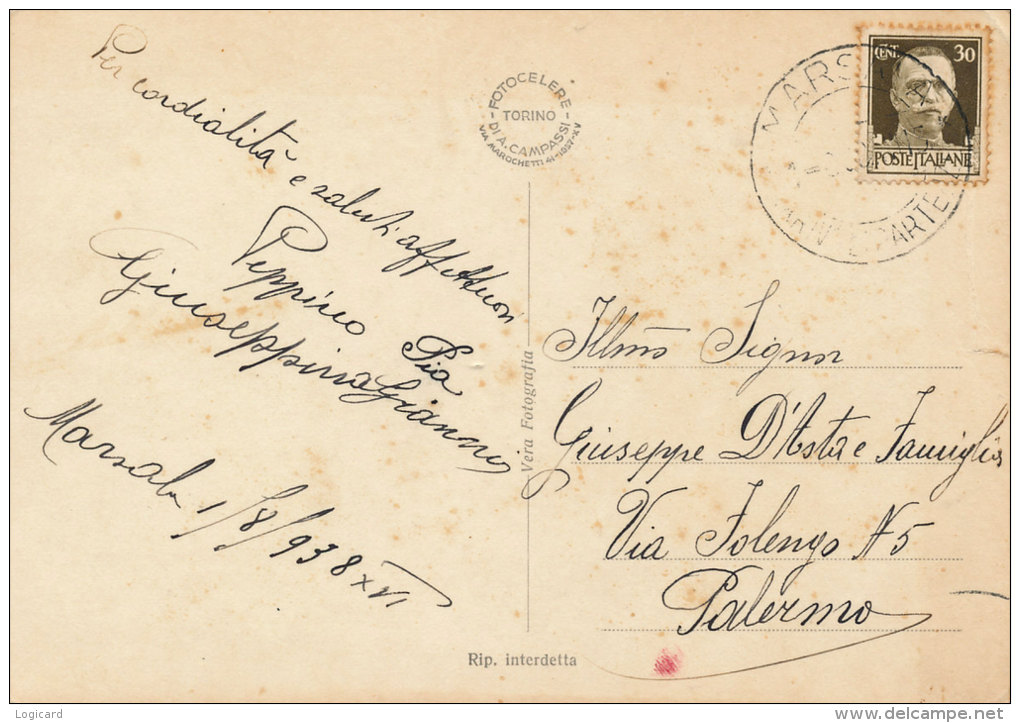 Per cordialità
e saluti affettuosi
Peppino
Pia
Giuseppina Gianni
Marsala 1/8/938 XVI
FOTOCELERE
TORINO
DI A. CAMPASSI
VIA MAROCHETTI 41-1937-XV
Vera Fotografia
Rip. interdetta
CENT. 30
POSTE ITALIANE
MARSALA
ARRIVI E PARTENZE
Illmo Signor
Giuseppe D'Asta e Famiglia
Via Folengo N 5
Palermo
Logicard
www.delcampe.net